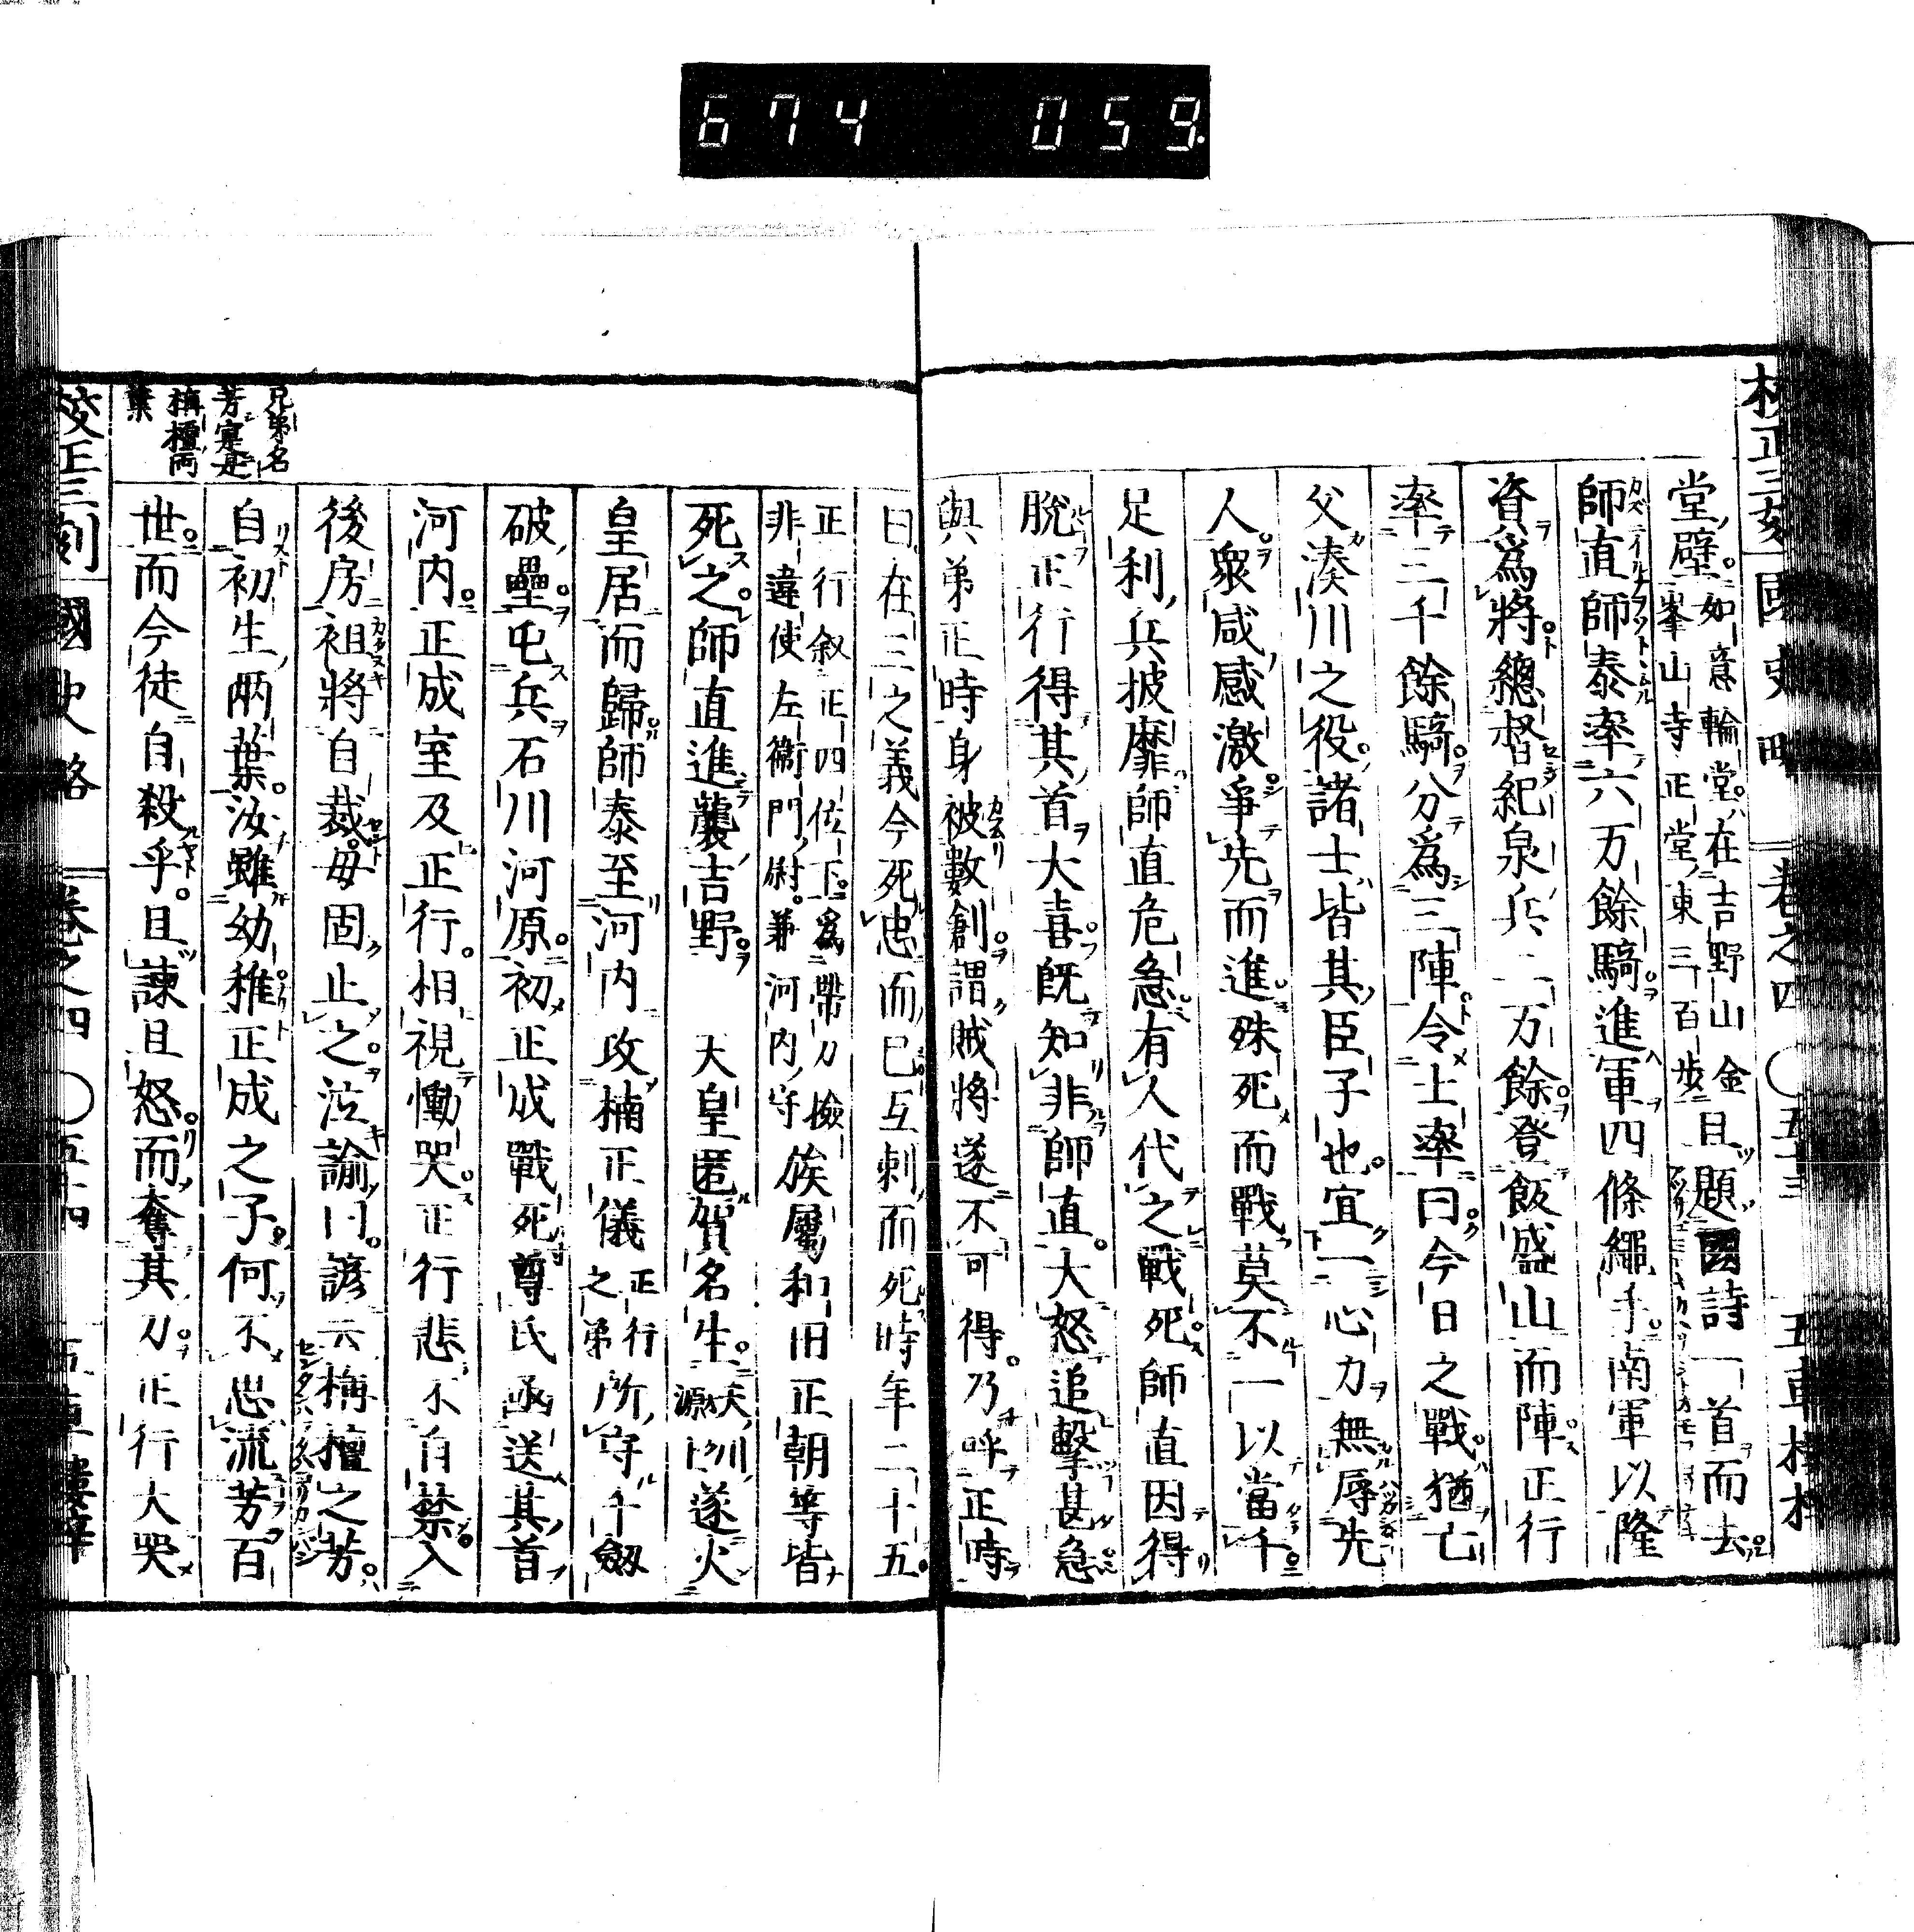 674 059
校正三刻 國史略 卷之四 ○五十三 五車樓梓
堂壁如意輪堂在吉野山金峯山寺正堂東三百步且題國詩一首而去
師直師泰率六万餘騎進軍四條繩手南軍以隆
資爲將總督紀泉兵二万餘登飯盛山而陣正行
率三千餘騎分爲三陣令士率曰今日之戰猶亡
父湊川之役諸士皆其臣子也宜一心力無辱先
人衆咸感激爭先而進殊死而戰莫不一以當千
足利兵披靡師直危急有人代之戰死師直因得
脫正行得其首大喜既知非師直大怒追擊甚急
與弟正時身被數創謂賊將遂不可得乃呼正時
曰在三之義今死忠而已互刺而死時年二十五
正行叙正四位下爲帶刀撿非違使左衞門尉兼河内守族屬和田正朝等皆
死之師直進襲吉野 天皇匿賀名生大源太訓遂火
皇居而歸師泰至河内攻楠正儀正行之弟所守千劔
破壘屯兵石川河原初正成戰死尊氏函送其首
河内正成室及正行相視慟哭正行悲不自禁入
後房袒將自裁母固止之泣諭曰諺云栴檀之芳
自初生兩葉汝雖幼稚正成之子何不思流芳百
世而今徒自殺乎且諫且怒而奪其刀正行大哭
兄弟名
芳寔是
栴檀兩
葉
校正三刻 國史略 卷之四 ○五十四 五車樓梓